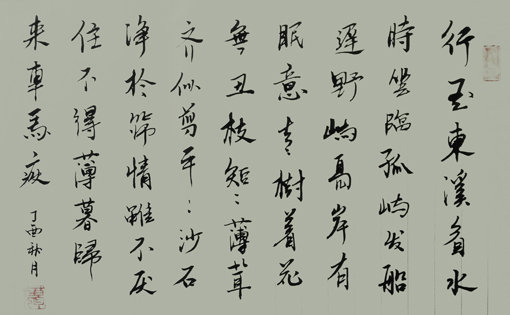 行到東溪看水
時坐臨孤嶼发船
遲野嶼鳧岸有
眠意老樹着花
無丑枝短〻薄茸
齐似剪平〻沙石
净於篩情雖不厌
住不得薄暮歸
来車馬疲
丁酉秋月